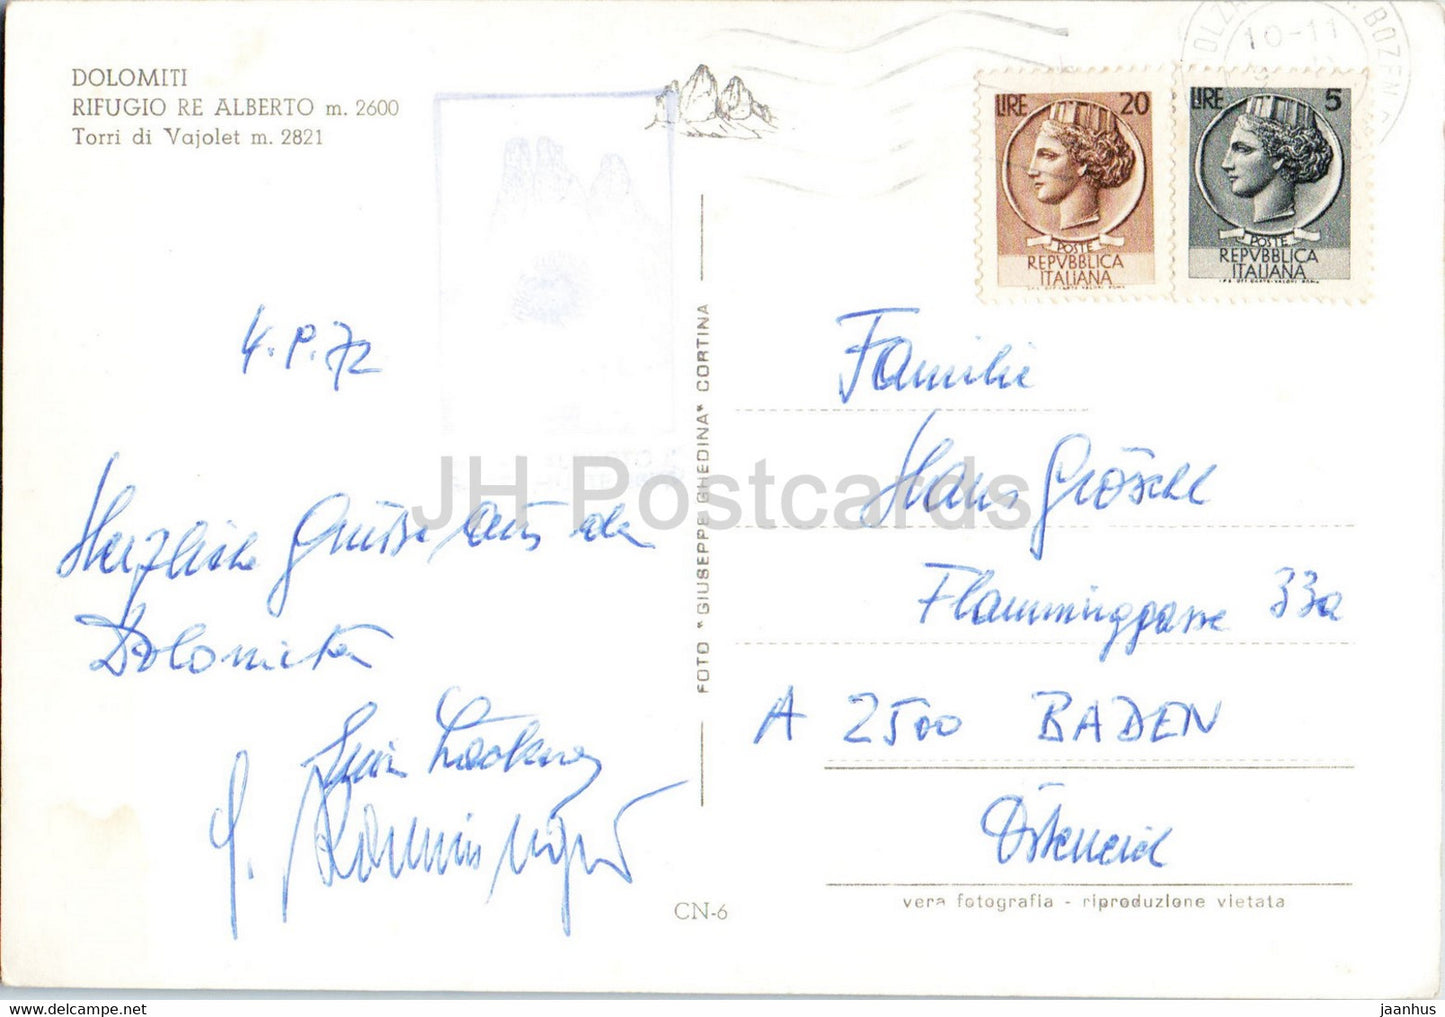 DOLOMITI
RIFUGIO RE ALBERTO m. 2600
Torri di Vajolet m. 2821
BOZEN
10-11
LIRE 20
POSTE
REPVBBLICA
ITALIANA
LIRE 5
POSTE
REPVBBLICA
ITALIANA
4. 72
Herzliche Grüsse aus den
Dolomiten
FOTO "GIUSEPPE GHEDINA" CORTINA
Familie
Hans Gröschl
Flamminggasse 33a
A 2500 BADEN
Österreich
CN-6
vera fotografia - riproduzione vietata
JH Postcards
jaanhus